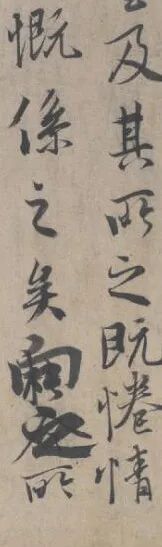 及其所之既惓情
慨係之矣向之所